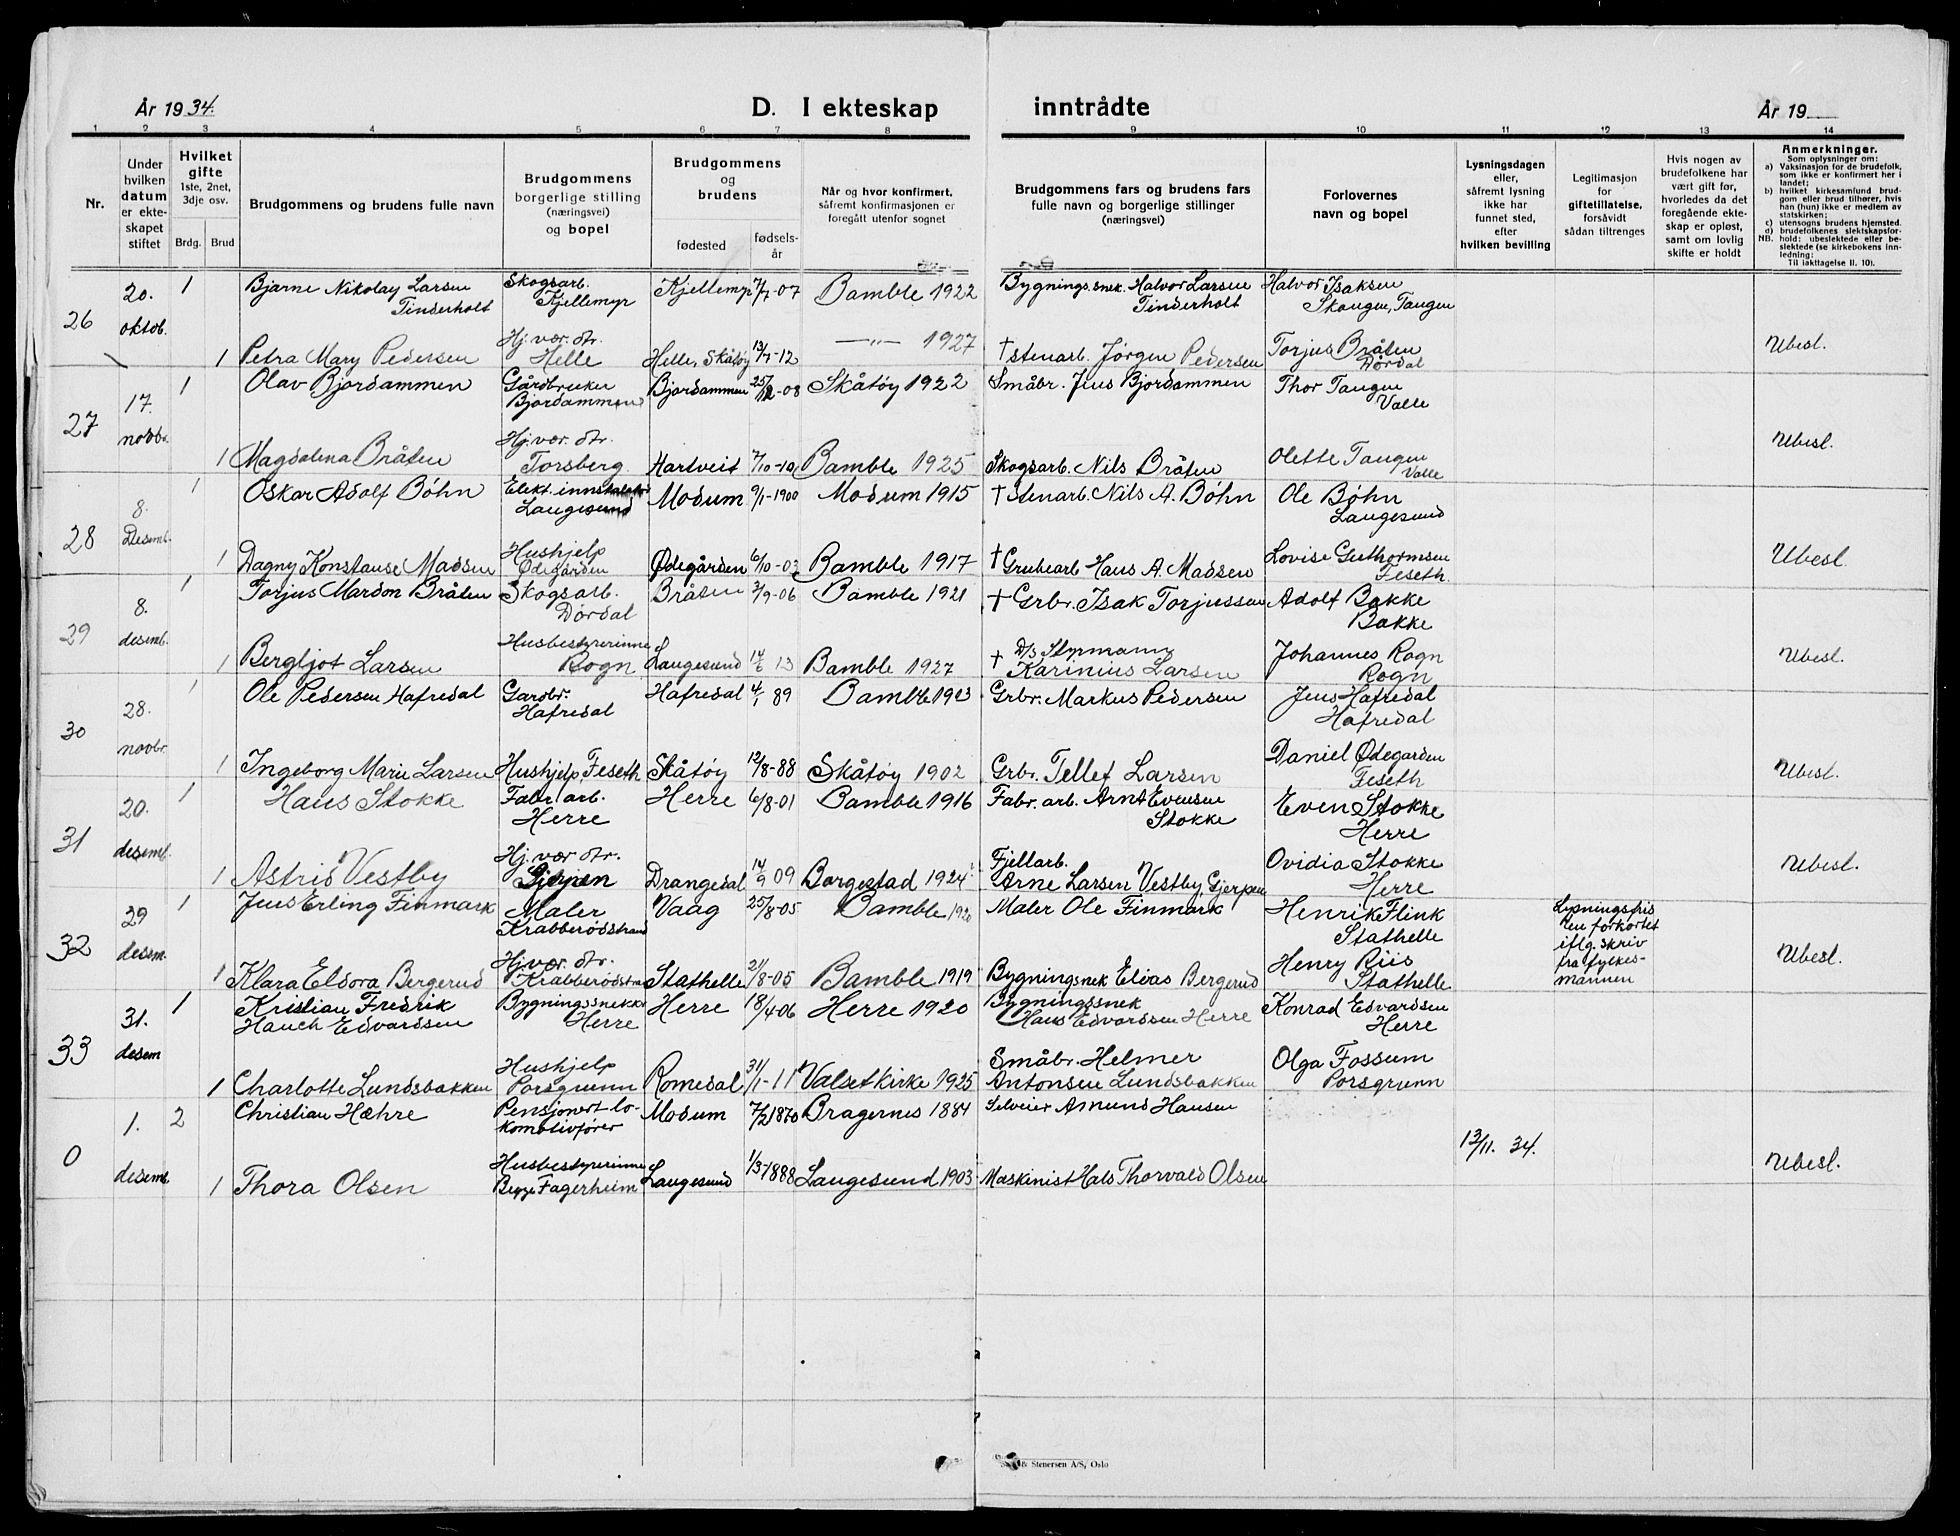 År 1934.
D. I ekteskap inntrådte
År 19
1 2 3 4 5 6 7 8 9 10 11 12 13 14
Nr.
Under
hvilken
datum
er ekte-
skapet
stiftet
Hvilket
gifte
1ste, 2net,
3dje osv.
Brdg. Brud
Brudgommens og brudens fulle navn
Brudgommens
borgerlige stilling
(næringsvei)
og bopel
Brudgommens
og
brudens
fødested
fødsels-
år
Når og hvor konfirmert,
såfremt konfirmasjonen er
foregått utenfor sognet
Brudgommens fars og brudens fars
fulle navn og borgerlige stillinger
(næringsvei)
Forlovernes
navn og bopel
Lysningsdagen
eller,
såfremt lysning
ikke har
funnet sted,
efter
hvilken bevilling
Legitimasjon
for
giftetillatelse,
forsåvidt
sådan tiltrenges
Hvis nogen av
brudefolkene har
vært gift før,
hvorledes da det
foregående ekte-
skap er opløst,
samt om lovlig
skifte er holdt
Anmerkninger.
Som oplysninger om:
a) Vaksinasjon for de brudefolk,
som ikke er konfirmert her i
landet;
b) hvilket kirkesamfund brud-
gom eller brud tilhører, hvis
han (hun) ikke er medlem av
statskirken;
c) utensogns brudens hjemsted.
d) brudefolkenes slektskapsfor-
NB. hold: ubeslektede eller be-
slektede (se kirkebokens inn-
ledning:
Til iakttagelse II. 10).
26
20.
oktob.
1
Bjarne Nikolay Larsen
Tinderholt
Skogsarb.
Kjellemyr
Kjellemyr 7/7-07 Bamble 1922
Bygnings.snek. Halvor Larsen
Tinderholt
Halvor Isaksen
Skaugen, Tangen
1 Petra Mary Pedersen
Hj.vær. dtr.
Helle
Helle, Skåtøy 13/7-12 —"— 1927
† stenarb. Jørgen Pedersen
Torjus Bråten
Dørdal
Ubesl.
27
17.
novbr.
1
Olav Bjordammen
Gårdbruker
Bjordammen
Bjordammen 25/12-08 Skåtøy 1922
Småbr. Jens Bjordammen
Thor Tangen
Valle
1 Magdalena Bråten
Hj.vær. dtr.
Torsberg
Hartveit 7/10-10 Bamble 1925
Skogsarb. Nils Bråten
Olette Tangen
Valle
Ubesl.
28
8.
Desemb.
1
Oskar Adolf Bøhn
Elekt. innstalatør
Langesund
Modum 9/1-1900 Modum 1915
† stenarb. Nils A. Bøhn
Ole Bøhn
Langesund
1 Dagny Konstanse Madsen
Hushjelp
Ødegården
Ødegården 6/10-03 Bamble 1917
† Grubearb Hans A. Madsen
Lovise Guthormsen
Feseth
Ubesl.
29
8.
desemb.
1
Torjus Mardon Bråten
Skogsarb.
Dørdal
Bråten 3/9-06 Bamble 1921
† Grbr. Isak Torjussen
Adolf Bakke
Bakke
1 Bergljot Larsen
Husbestyrerinne
Rogn
Langesund 14/6 13 Bamble 1927
† D/S Styrmann
Karinius Larsen
Johannes Rogn
Rogn
Ubesl.
30
28.
novbr.
1
Ole Pedersen Hafredal
Gardbr.
Hafredal
Hafredal 4/1 89 Bamble 1903
Grbr. Markus Pedersen
Jens Hafredal
Hafredal
1 Ingeborg Marie Larsen
Hushjelp Feseth
Skåtøy 12/8-88 Skåtøy 1902
Grbr. Tellef Larsen
Daniel Ødegarden
Feseth
Ubesl.
31
20.
desemb.
1
Hans Stokke
Fabr. arb.
Herre
Herre 6/8-01 Bamble 1916
Fabr. arb. Arnt Evensen
Stokke
Even Stokke
Herre
1 Astrid Vestby
Hj. vær dtr.
Gjerpen
Drangedal 14/9 09 Borgestad 1924
Fjellarb.
Arne Larsen Vestby, Gjerpen
Ovidia Stokke
Herre
Ubesl.
32
29
desem.
1
Jens Erling Finmark
Maler
Krabberødstrand
Vaag 25/8-05 Bamble 1920
Maler Ole Finmark
Henrik Flink
Stathelle
Lysningsfris
ten forkortet
iflg. skriv
fra fylkes-
mannen
1 Klara Eldora Bergerud
Hj.vær. dtr.
Krabberødstrand
Stathelle 21/8-05 Bamble 1919
Bygningsnek Elias Bergerud
Henry Riis
Stathelle
Ubesl.
33
31.
desem
1
Kristian Fredrik
Hauch Edvardsen
Bygningssnekker
Herre
Herre 18/4-06 Herre 1920
Bygningssnek
Hans Edvardsen Herre
Konrad Edvardsen
Herre
1 Charlotte Lundsbakken
Hushjelp
Porsgrunn
Romedal 31/1-11 Valset kirke 1925
Småbr. Helmer
Antonsen Lundsbakken
Olga Fossum
Porsgrunn
0
1.
desemb.
2
Christian Hæhre
Pensjonert lo-
komotivfører
Modum 7/2 1870 Bragernes 1884
Seleier Amund Hansen
13/11. 34.
1 Thora Olsen
Husbestyrerinne
Begge Fagerheim
Langesund 1/3-1888 Langesund 1903
Maskinist Hals Thorvald Olsen
Ubesl.
& Stenersen A/S, Oslo